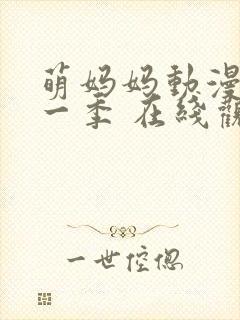 萌妈妈動漫
一季 在綫觀
一世倥偬